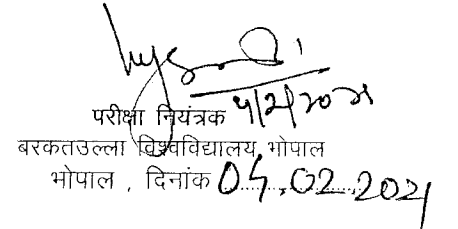 परीक्षा नियंत्रक
बरकतउल्ला विश्वविद्यालय, भोपाल
भोपाल , दिनांक 04.02.2021